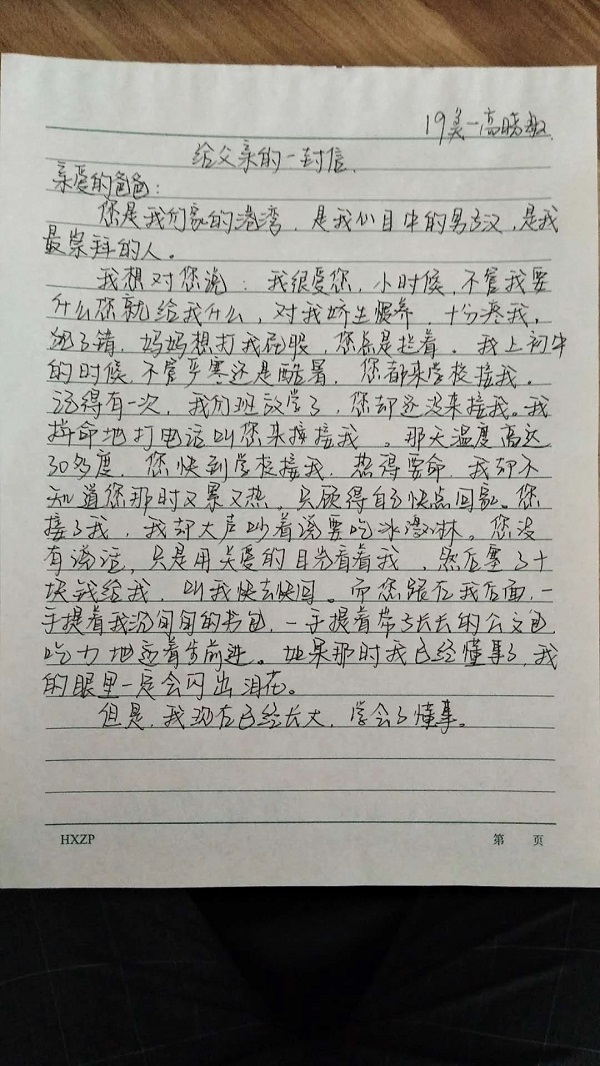 19美一高晓
给父亲的一封信.
亲爱的爸爸:
您是我们家的港湾,是我心目中的男子汉,是我
最崇拜的人。
我想对您说:我很爱您,小时候,不管我要
什么您就给我什么,对我娇生惯养,十分疼我,
犯了错,妈妈想打我屁股,您总是拦着。我上初中
的时候,不管严寒还是酷暑,您都来学校接我。
记得有一次,我们班放学了,您却还没来接我。我
拼命地打电话叫您来接我。那天温度高达
30多度,您快到学校接我,热得要命,我却不
知道您那时又累又热,只顾得自己快点回家。您
接了我,我却大声吵着说要吃冰激淋。您没
有说话,只是用关爱的目光看着我,然后塞了十
块钱给我,叫我快去快回。而您跟在我后面,一
手提着我沉甸甸的书包,一手提着带子长长的公文包,
吃力地迈着步前进。如果那时我已经懂事了,我
的眼里一定会闪出泪花。
但是,我现在已经长大,学会了懂事。
HXZP
第 页